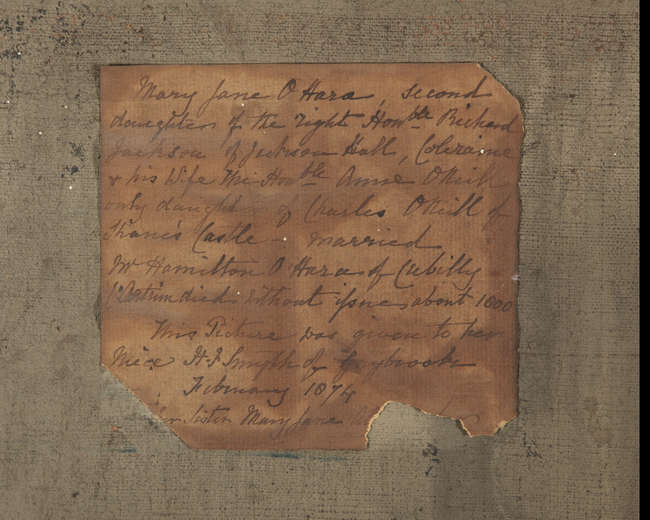 Mary Jane O Hara, second
daughter of the right Honble Richard
Jackson of Jackson Hall, Coleraine
& his Wife The Honble Anne O Neill
only daughter of Charles O Neill of
Shane's Castle - married
Mr Hamilton O Hara of Crebilly
Co Antrim died without issue about 1800
This Picture was given to her
Niece H F Smyth of Gaybrook
February 1874
her sister Mary Jane